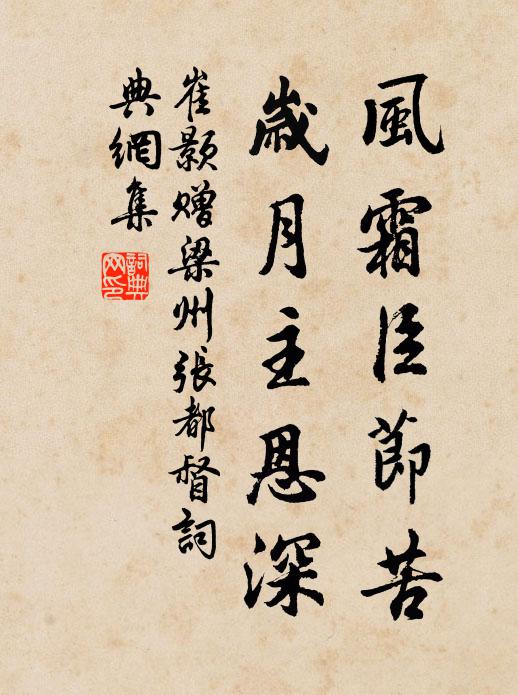 風霜臣節苦
歲月主恩深
崔顥贈梁州張都督詞
典網集
詞典
网印